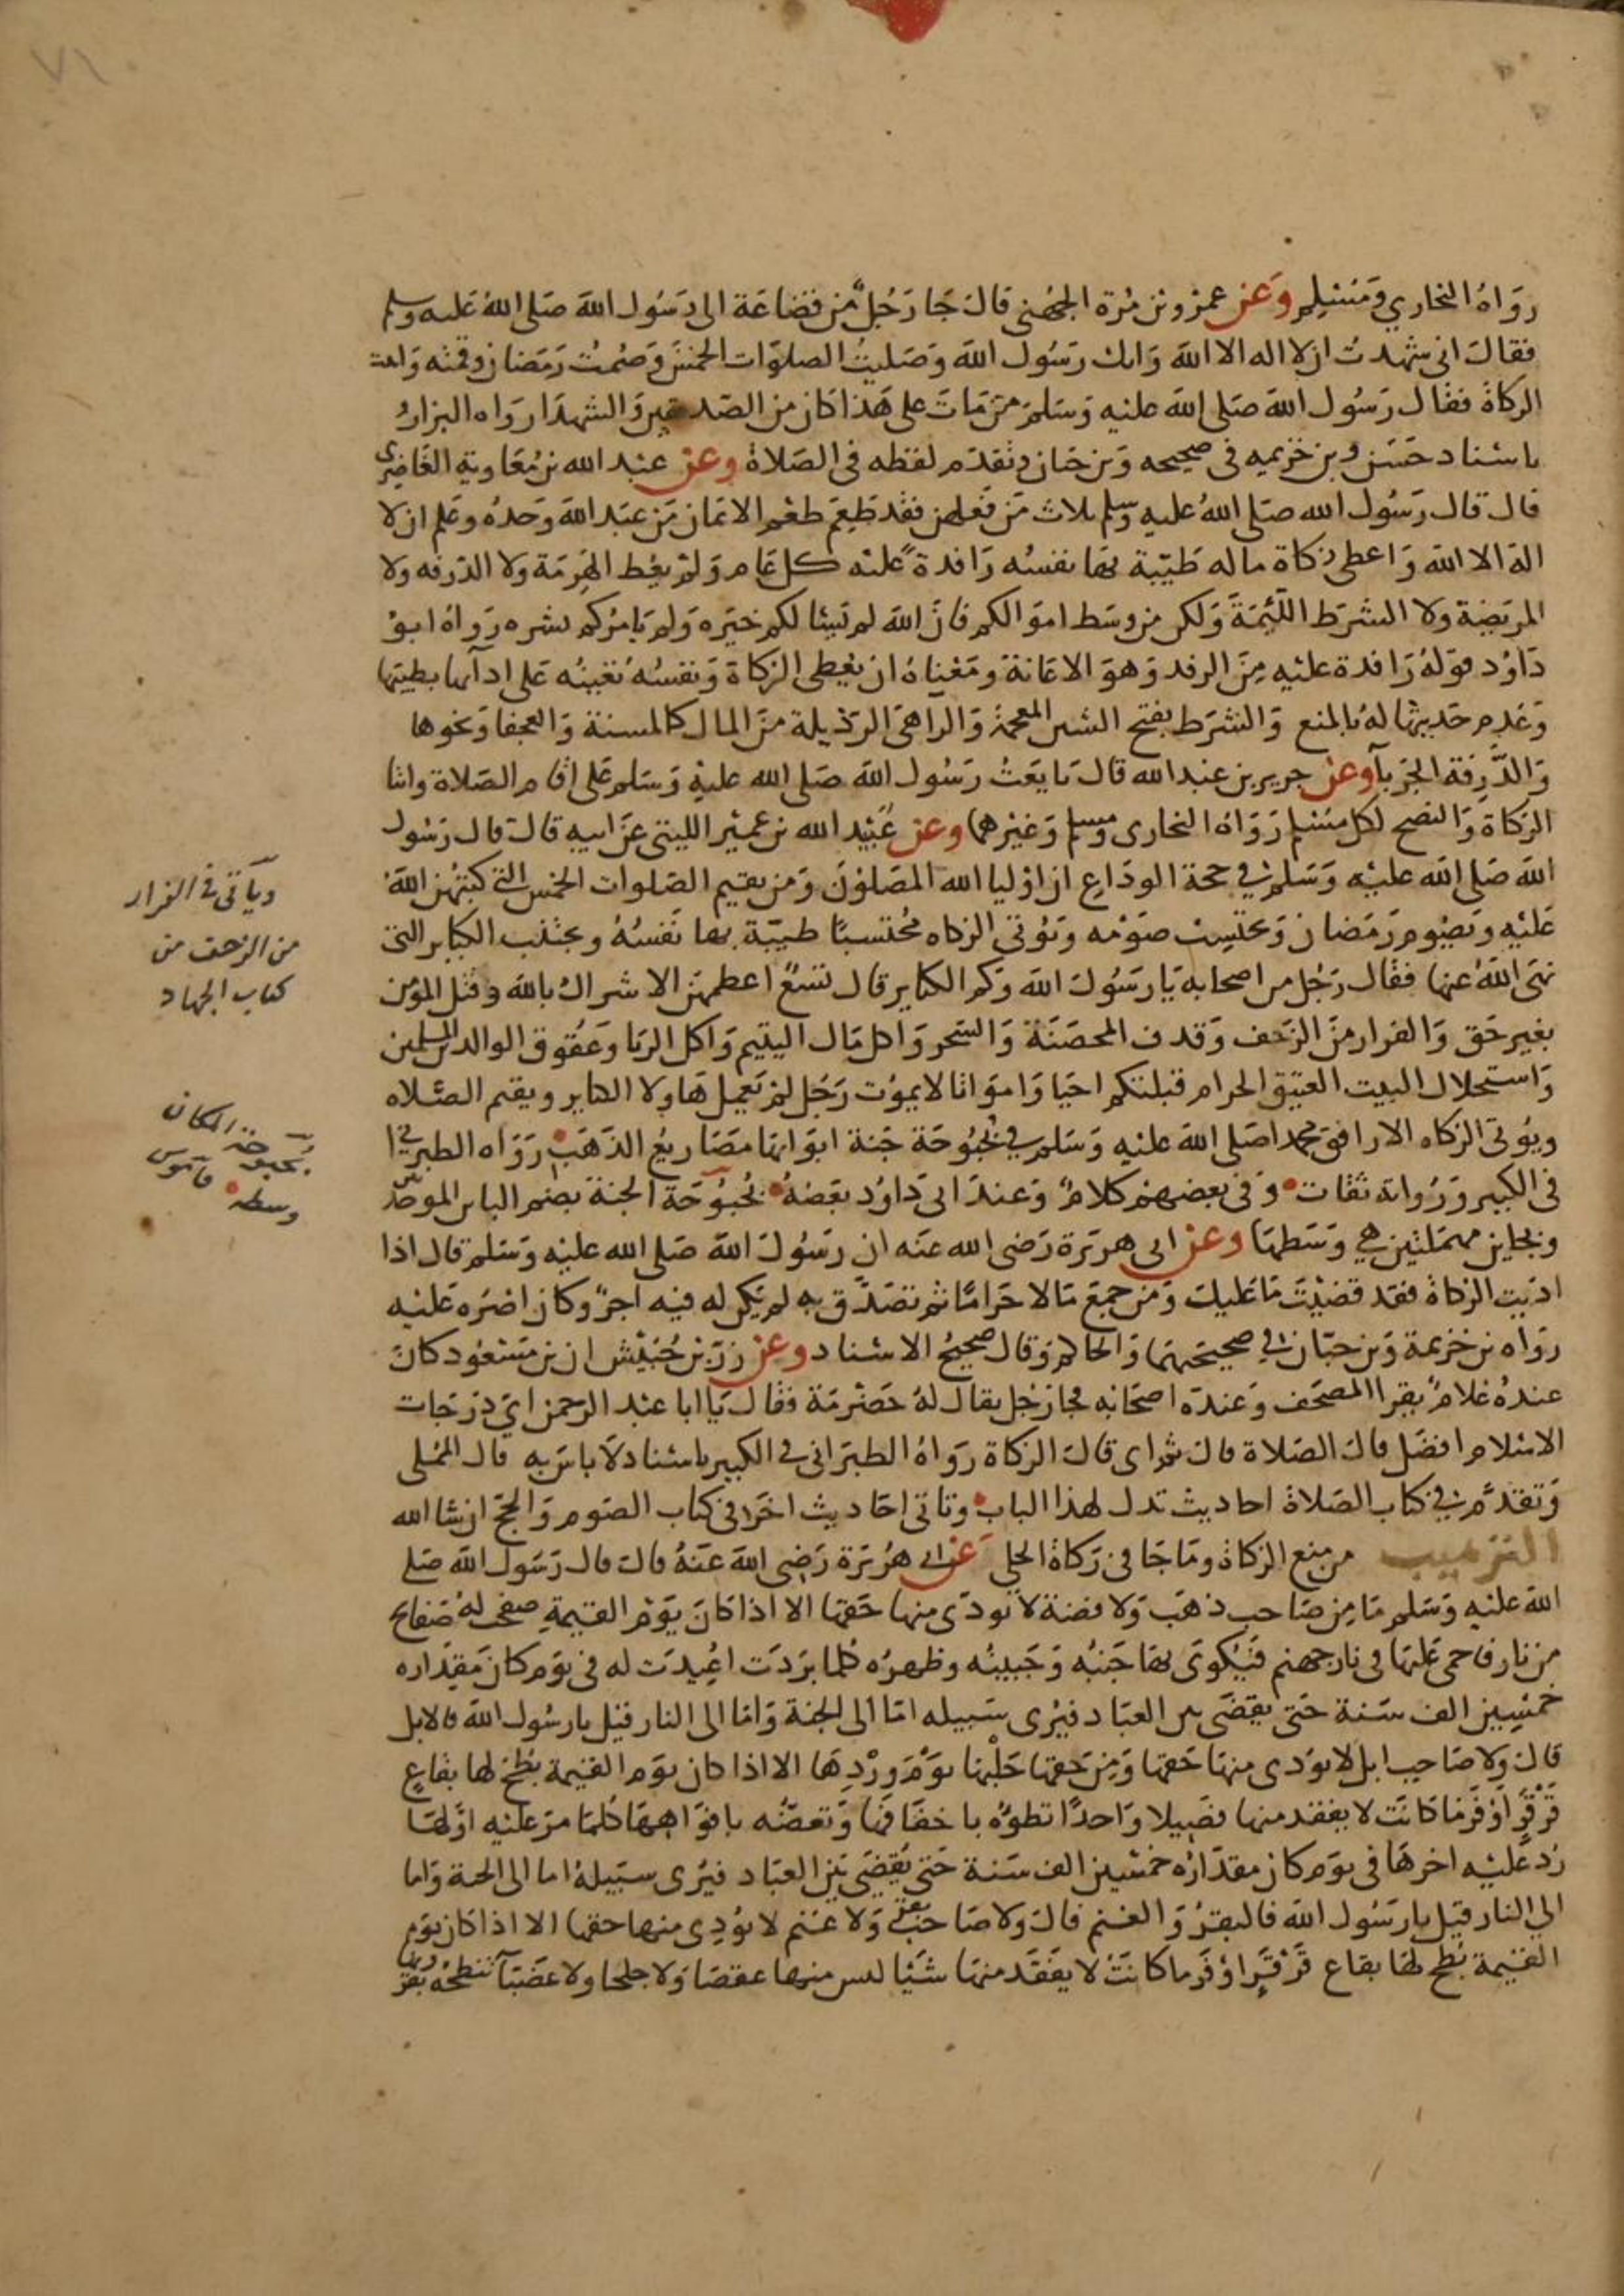 ٧١
رواه البخاري ومسلم وعن عمرو بن مرة الجهني قال جا رجل من قضاعة الى رسول الله صلى الله عليه وسلم
فقال اني شهدت ان لا اله الا الله وانك رسول الله وصليت الصلوات الخمس وصمت رمضان وقمته واتيت
الزكاة فقال رسول الله صلى الله عليه وسلم من مات على هذا كان من الصديقين والشهدا رواه البزار
باسناد حسن وبن خزيمه في صحيحه وبن حبان وتقدم لفظه في الصلاة وعن عبد الله بن معاوية الغاضري
قال قال رسول الله صلى الله عليه وسلم ثلاث من فعلهن فقد طعم طعم الايمان من عبد الله وحده وعلم ان لا
اله الا الله واعطى زكاة ماله طيبة بها نفسه رافدة عليه كل عام ولم يعط الهرمة ولا الدرنه ولا
المريضة ولا الشرط اللئيمة ولكن من وسط اموالكم فان الله لم يسئالكم خيره ولم يامركم بشره رواه ابو
داود قوله رافدة عليه من الرفد وهو الاعانة ومعناه ان يعطي الزكاة ونفسه تعينه على ادآئها بطيبها
وعدم حديثها له بالمنع والشرط بفتح الشين المعجمة والراهي الرذيلة من المال كالمسنة والعجفا ونحوها
والدرنة الجربآ وعن جرير بن عبد الله قال بايعت رسول الله صلى الله عليه وسلم على اقام الصلاة وايتا
الزكاة والنصح لكل مسلم رواه البخاري ومسلم وغيرهما وعن عبيد الله بن عمير الليثي عن ابيه قال قال رسول
الله صلى الله عليه وسلم في حجة الوداع ان اوليا الله المصلون ومن يقيم الصلوات الخمس التي كتبهن الله
عليه ويصوم رمضان ويحتسب صومه ويؤتي الزكاه محتسبا طيبة بها نفسه ويجتنب الكباير التي
نهى الله عنها فقال رجل من اصحابه يا رسول الله وكم الكباير قال تسع اعظمهن الاشراك بالله وقتل المؤمن
بغير حق والفرار من الزحف وقذف المحصنة والسحر واكل مال اليتيم واكل الربا وعقوق الوالدين المسلمين
واستحلال البيت العتيق الحرام قبلتكم احيا وامواتا لا يموت رجل لم يعمل هاولا الكباير ويقيم الصلاه
ويؤتي الزكاه الا رافق محمدا صلى الله عليه وسلم في بحبوحة جنة ابوابها مصاريع الذهب رواه الطبراني
في الكبير ورواته ثقات وفي بعضهم كلام وعند ابي داود بعضه بحبوحة الجنة بضم البائين الموحدتين
وبحاين مهملتين هي وسطها وعن ابي هريرة رضي الله عنه ان رسول الله صلى الله عليه وسلم قال اذا
اديت الزكاة فقد قضيت ما عليك ومن جمع مالا حراما ثم تصدق به لم يكن له فيه اجر وكان اصره عليه
رواه بن خزيمة وبن حبان في صحيحيهما والحاكم وقال صحيح الاسناد وعن زر بن حبيش ان بن مسعود كان
عنده غلام يقرا المصحف وعنده اصحابه فجا رجل يقال له حضرمة فقال يا ابا عبد الرحمن اي درجات
الاسلام افضل قال الصلاة قال ثم اي قال الزكاة رواه الطبراني في الكبير باسناد لا باس به قال المملي
وتقدم في كتاب الصلاة احاديث تدل لهذا الباب وتاتي احاديث اخر في كتاب الصوم والحج ان شا الله
الترهيب من منع الزكاة وما جا في زكاة الحلي عن ابي هريرة رضي الله عنه قال قال رسول الله صلى
الله عليه وسلم ما من صاحب ذهب ولا فضة لا يودي منها حقها الا اذا كان يوم القيمة صفحت له صفايح
من نار فاحمي عليها في نار جهنم فيكوى بها جنبه وجبينه وظهره كلما بردت اعيدت له في يوم كان مقداره
خمسين الف سنة حتى يقضى بين العباد فيرى سبيله اما الى الجنة واما الى النار قيل يارسول الله فالابل
قال ولا صاحب ابل لا يودي منها حقها ومن حقها حلبها يوم وردها الا اذا كان يوم القيمة بطح لها بقاع
قرقر اوفر ما كانت لا يفقد منها فصيلا واحدا تطؤه باخفافها وتعضه بافواهها كلما مر عليه اولها
رد عليه اخرها في يوم كان مقداره خمسين الف سنة حتى يقضى بين العباد فيرى سبيله اما الى الجنة واما
الي النار قيل يارسول الله فالبقر والغنم قال ولا صاحب بقر ولا غنم لا يؤدي منها حقها الا اذا كان يوم
القيمة بطح لها بقاع قرقر اوفر ما كانت لا يفقد منها شيئا ليس منها عقصا ولا جلحا ولا عضبآ تنطحه بقرونها
ويآتي في الفرار
من الزحف من
كتاب الجهاد
بحبوحة المكان
وسطه قاموس